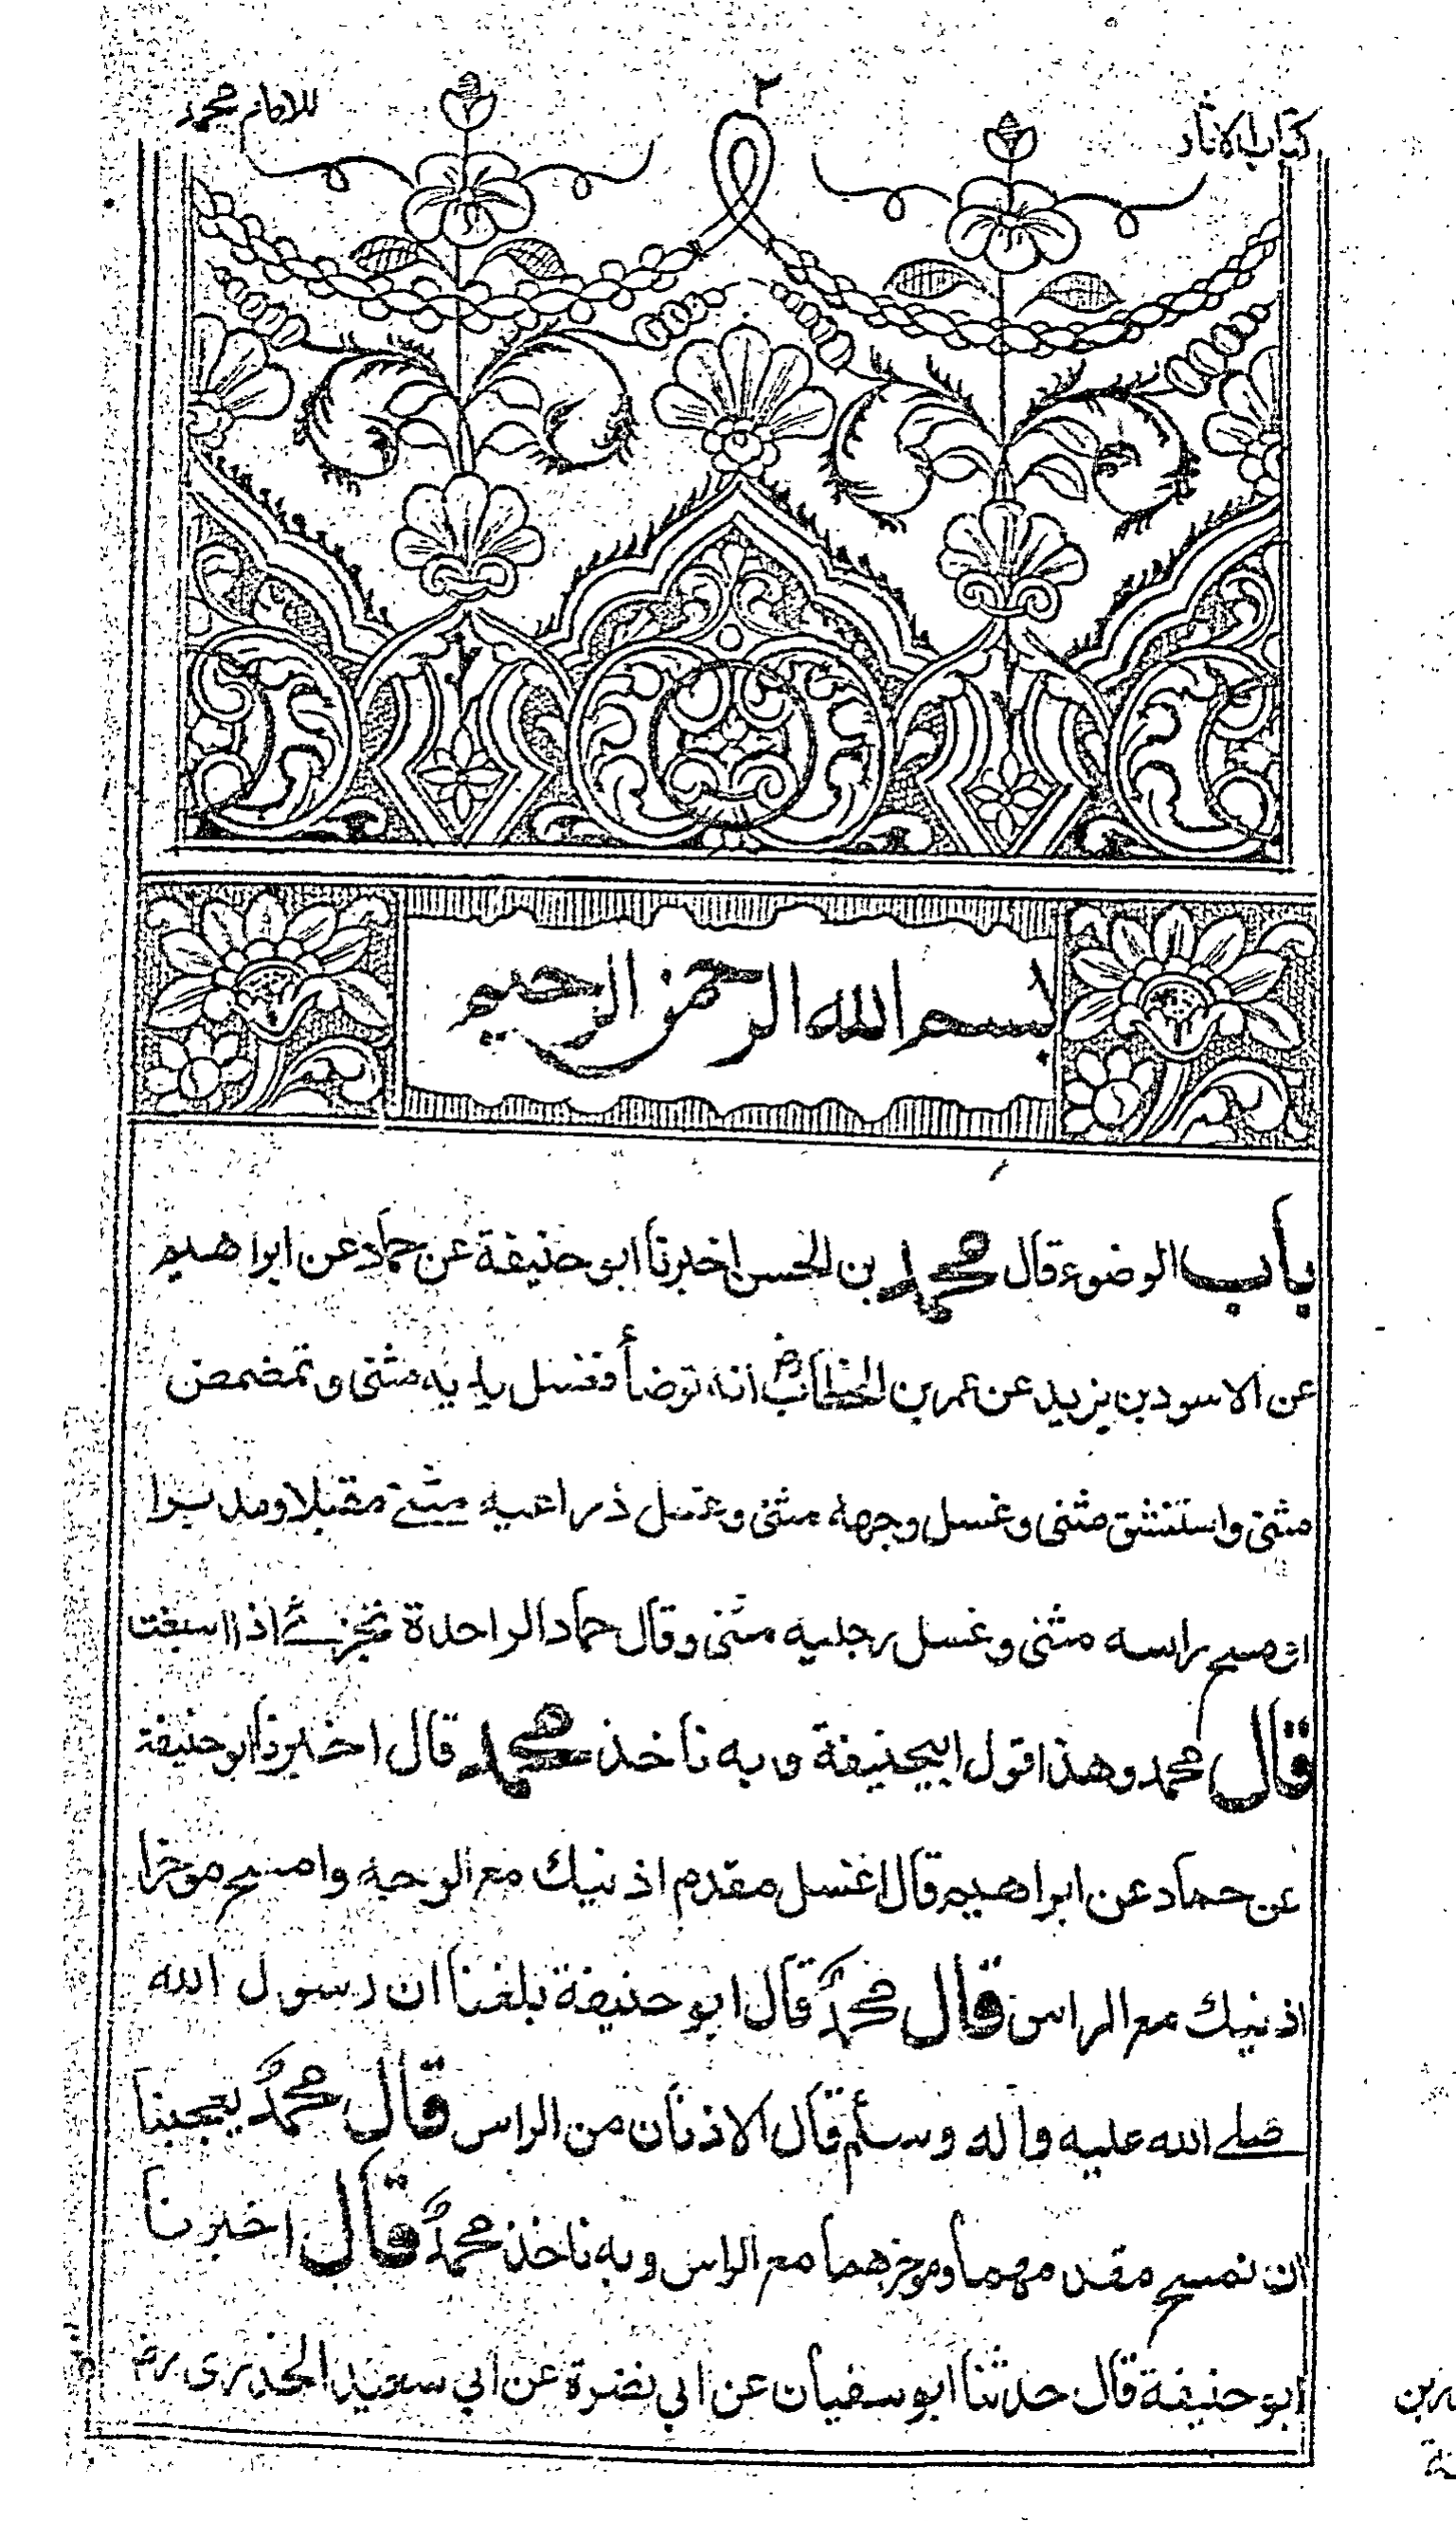 كتاب الاثار
٢
للامام محمد
بسم الله الرحمن الرحيم
باب الوضوء قال محمد بن الحسن اخبرنا ابو حنيفة عن حماد عن ابراهيم
عن الاسود بن يزيد عن عمر بن الخطاب رض انه توضأ فغسل يديه مثنى وتمضمض
مثنى واستنشق مثنى وغسل وجهه مثنى وغسل ذراعيه مثنے مقبلا ومدبرا
ومسح راسه مثنى وغسل رجليه مثنى وقال حماد الواحدة تجزئ اذا اسبغت
قال محمد وهذا قول ابيحنيفة وبه ناخذ محمد قال اخبرنا ابو حنيفة
عن حماد عن ابراهيم قال اغسل مقدم اذنيك مع الوجه وامسح موخرا
اذنيك مع الراس قال محمد قال ابو حنيفة بلغنا ان رسول الله
صلے الله عليه واله وسلم قال الاذنان من الراس قال محمد يعجبنا
ان نمسح مقدمهما وموخرهما مع الراس وبه ناخذ محمد قال اخبرنا
ابو حنيفة قال حدثنا ابو سفيان عن ابي نضرة عن ابي سعيد الخدري رض